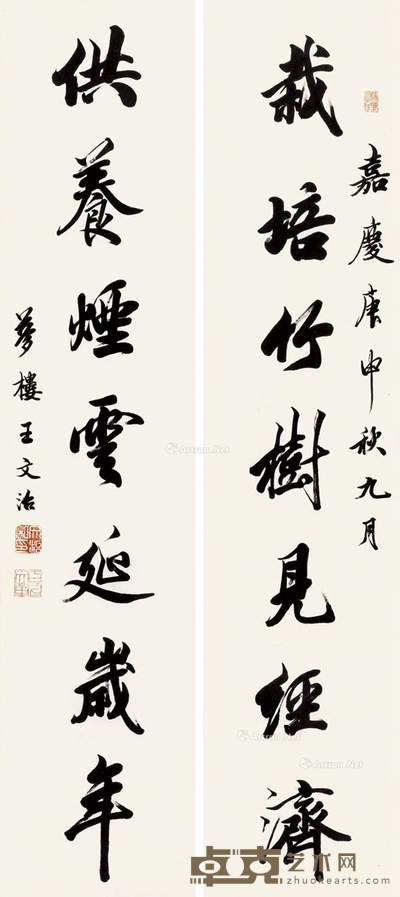 嘉慶庚申秋九月
栽培竹樹見經濟
供養煙雲延歲年
夢樓王文治
卓克艺术网
zhuokearts.com
Artron.Net